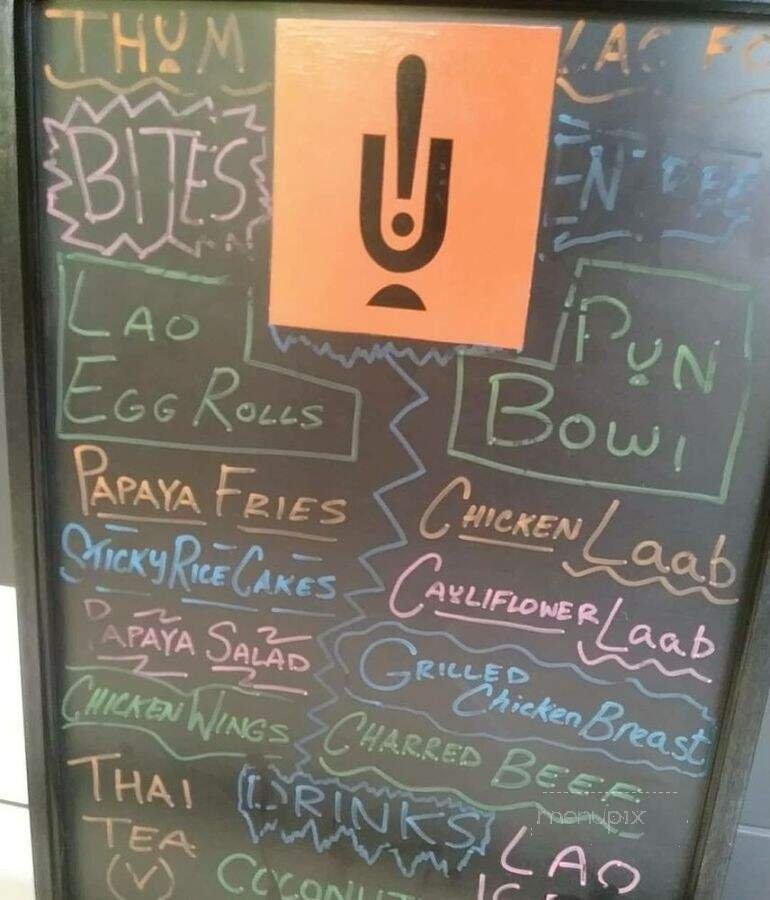 THUM
LAO FO
BITES
LAO
EGG ROLLS
PAPAYA FRIES
STICKY RICE CAKES
PAPAYA SALAD
CHICKEN WINGS
PUN
BOWl
CHICKEN Laab
CAULIFLOWER Laab
GRILLED
Chicken Breast
CHARRED BEEF
menupix
DRINKS
THAI
TEA
(V)
COCONUT
LAO